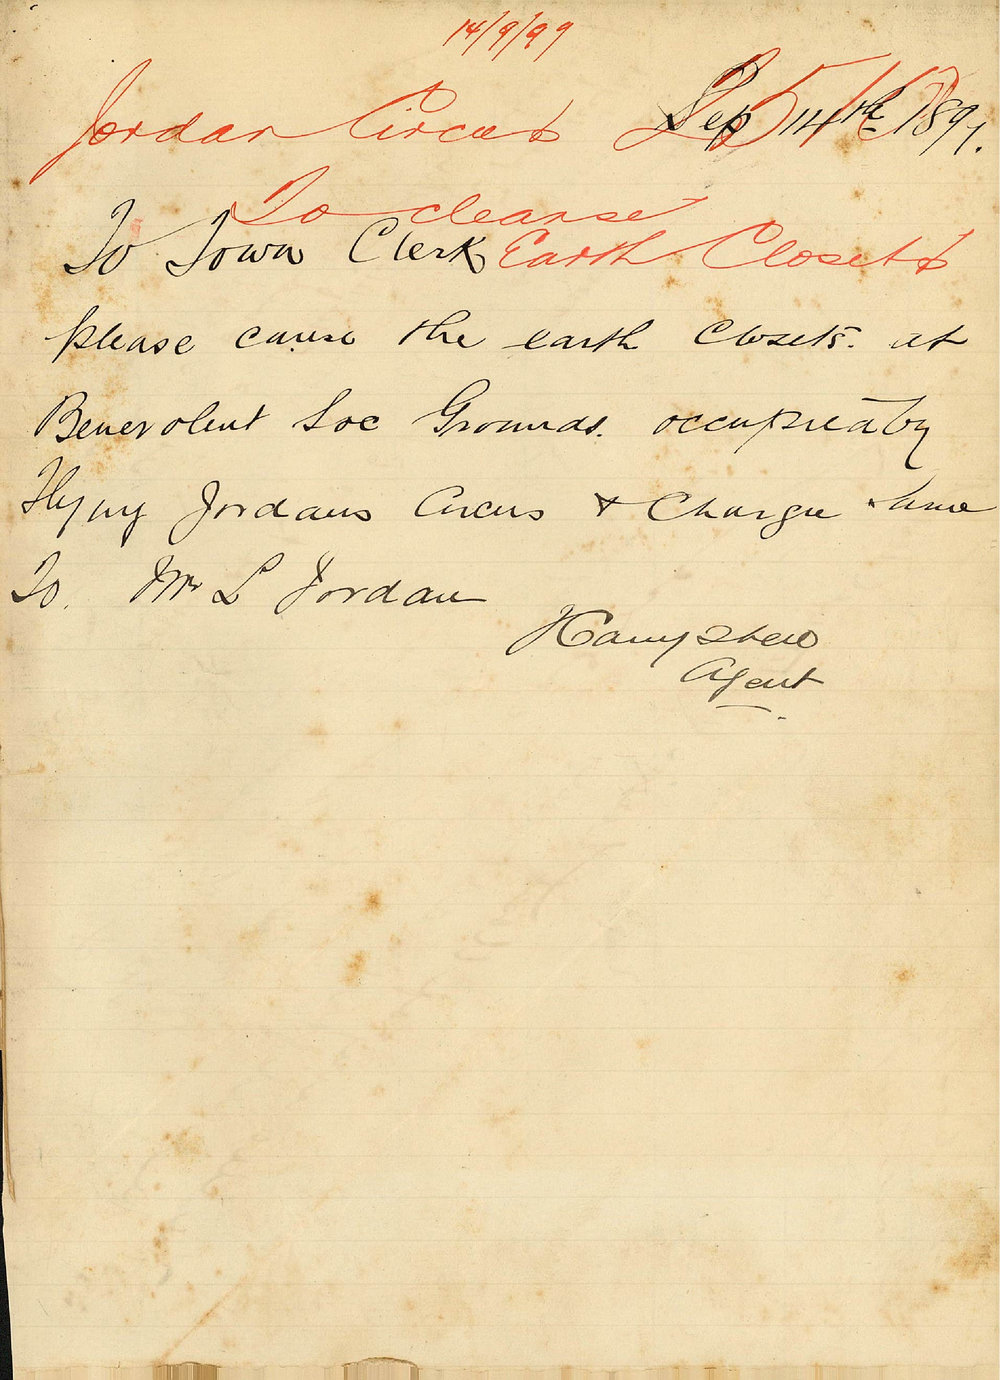 14/9/99
Jordan Circus
Sep 14th 189
To cleanse
Earth Closets
To Town Clerk
please cause the earth closets. at
Benevolent Soc Grounds. occupied by
Flying Jordans Circus & Charge same
To. Mr L Jordan
Agent